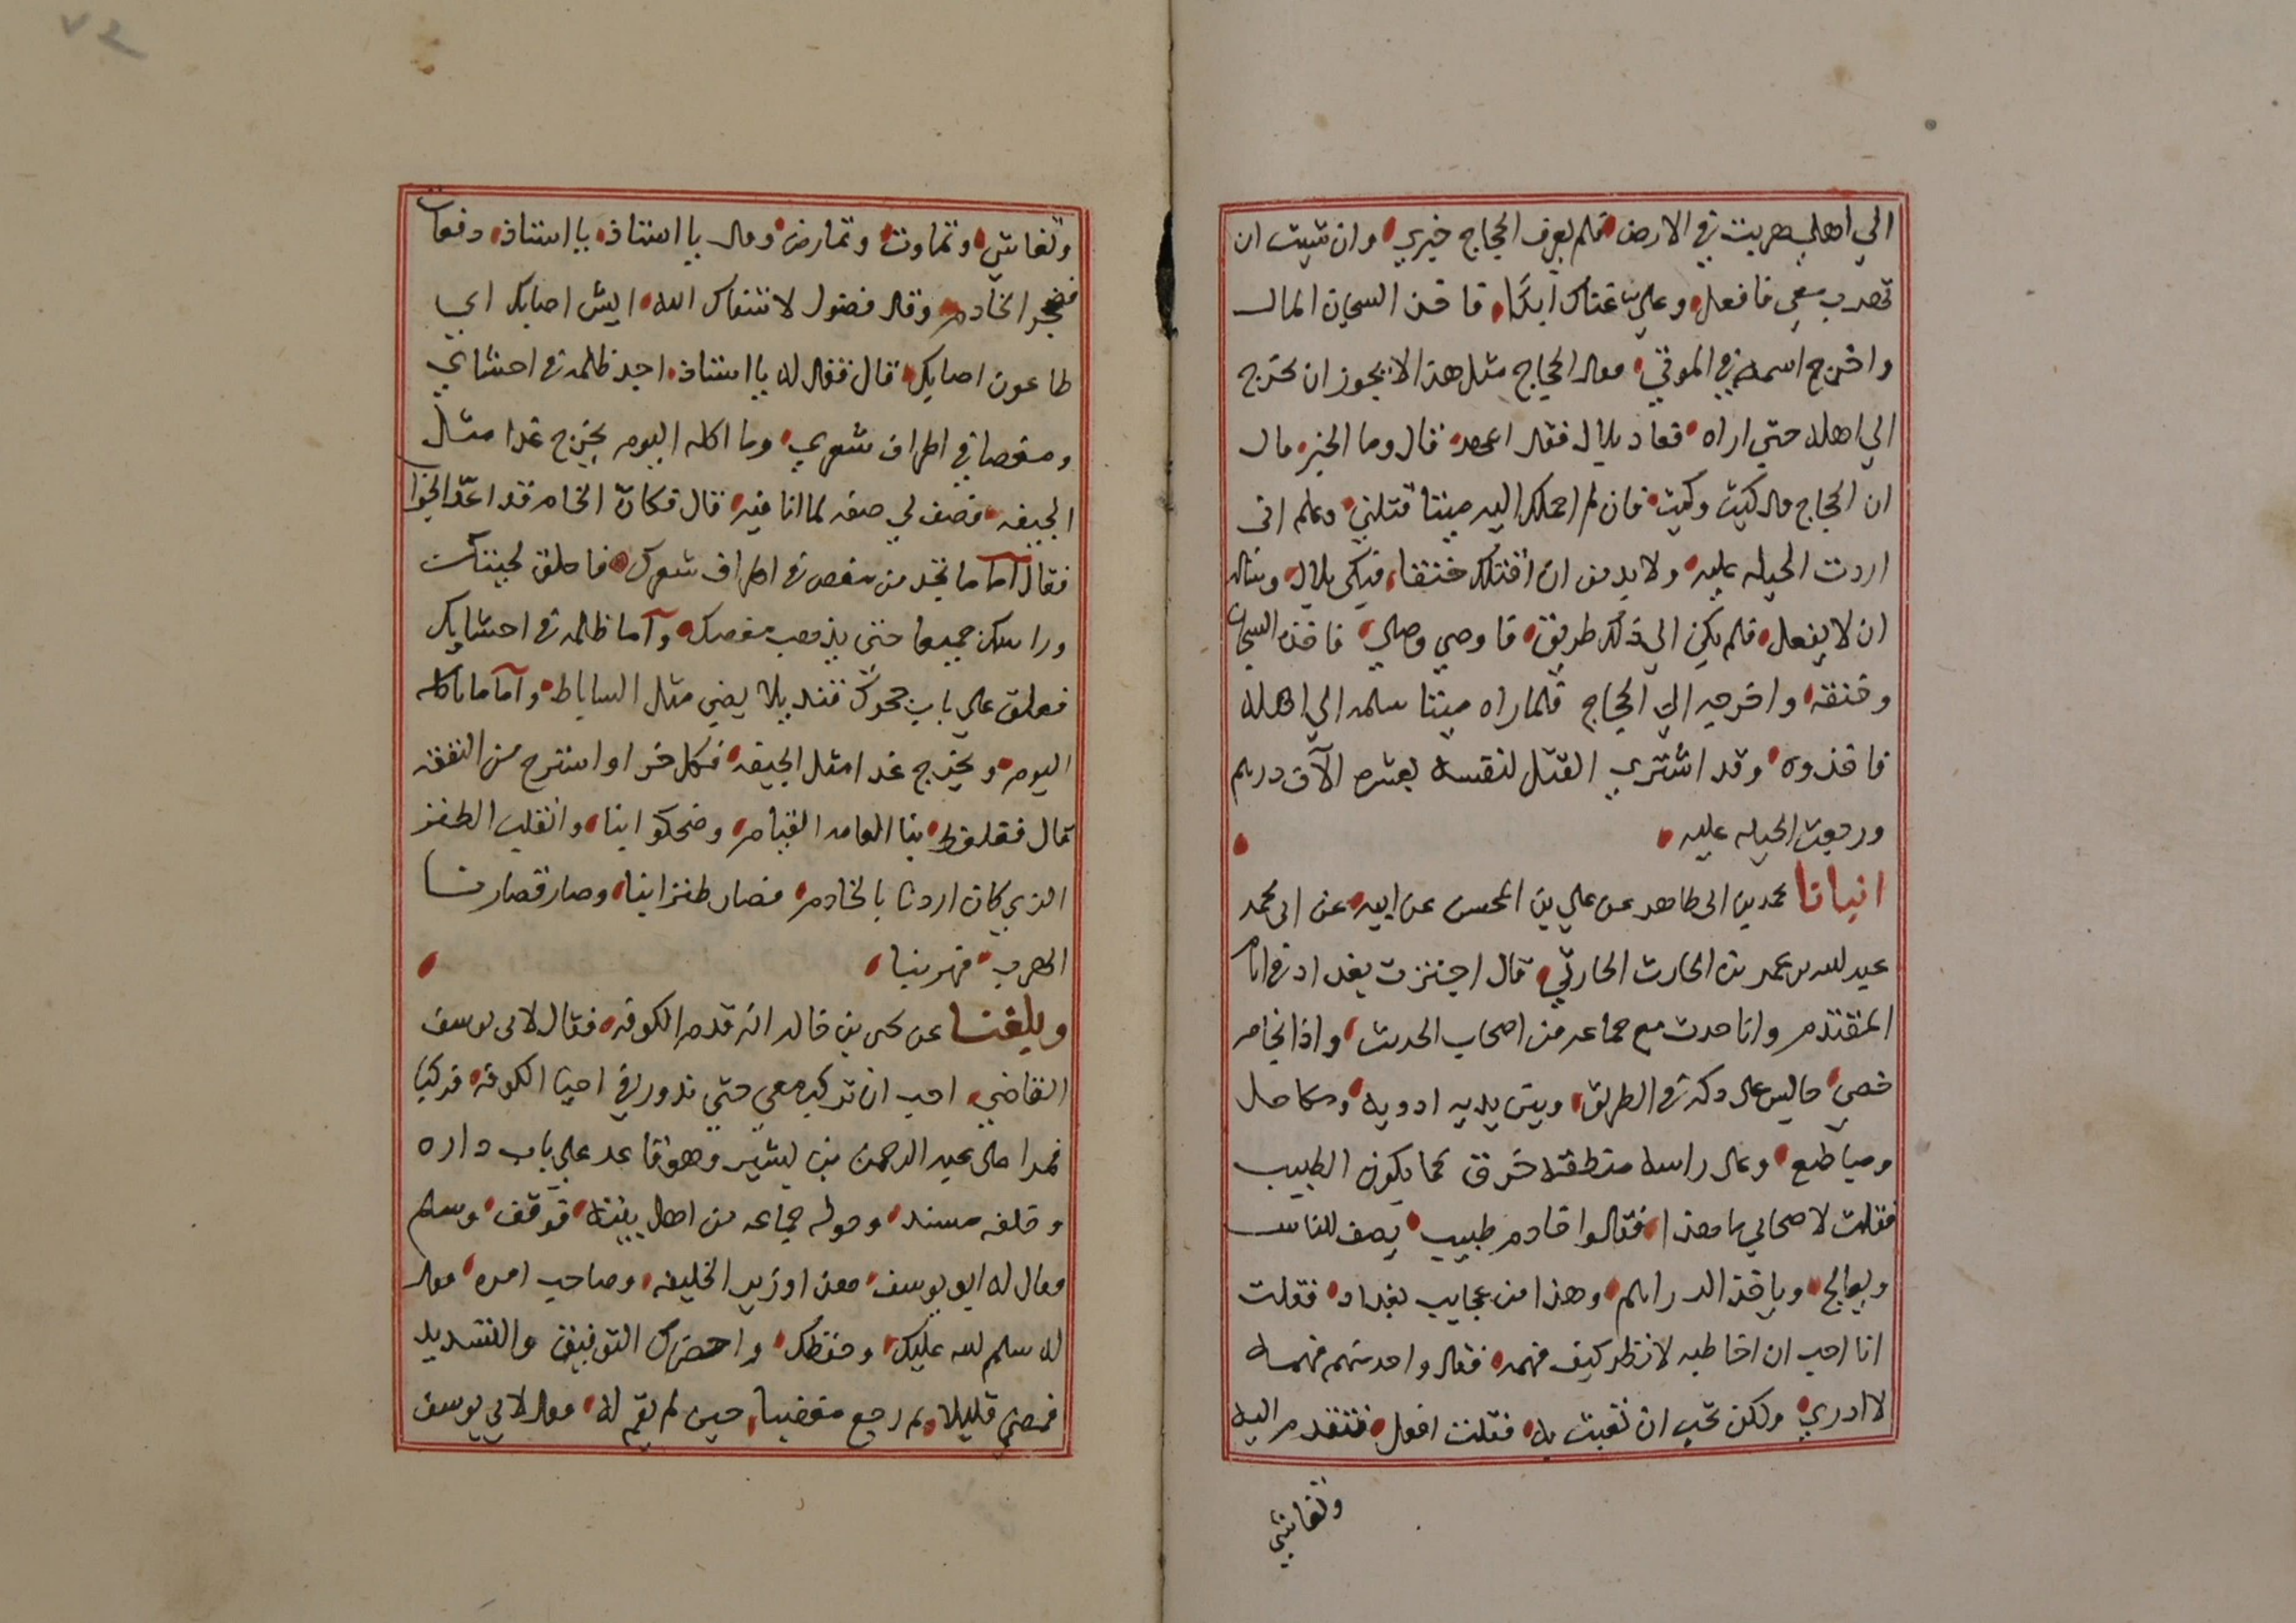 الي اهلي هربت في الارض فلم يعرف الحجاج خبري وان شيت ان
تهرب معي فافعل وعلي غناك ابدا فاخذ السجان المال
واخرج اسمه في الموتي فقال الحجاج مثل هذا لا يجوز ان يخرج
الي اهله حتي اراه فعاد بلال فقال اعهد قال وما الخبر قال
ان الحجاج قال كيت وكيت فان لم احملك اليه ميتا قتلني وعلم اني
اردت الحيله عليه ولا بد من ان اقتلك خنقا فبكي بلال وساله
ان لا يفعل فلم يكن الي ذلك طريق فاوصي وصلي فاخذه السجان
وخنقه واخرجه الي الحجاج فلما راه ميتا سلمه الي اهله
فاخذوه وقد اشتري القتل لنفسه بعشره الآف درهم
ورجعت الحيله عليه
انبانا محمد بن ابي طاهر عن علي بن المحسن عن ابيه عن ابي محمد
عبد الله بن عمر بن الحارث الحارثي قال اجتزت ببغداد في ايام
المقتدر وانا حدث مع جماعه من اصحاب الحديث واذا بخادم
خصي جالس علي دكه في الطريق وبين يديه ادويه ومكاحل
ومباضع وعلي راسه مظلة خرق كما يكون الطبيب
فقلت لاصحابي ما هذا فقالوا خادم طبيب يصف للناس
ويعالج وياخذ الدراهم وهذا من عجايب بغداد فقلت
انا احب ان اخاطبه لانظر كيف فهمه فقال واحد منهم فهمه
لا ادري ولكن تحب ان نعبث به فقلت افعل فتقدم اليه
وتغاشي
وتغاشي وتماوت وتمارض وقال يا استاذ يا استاذ دفعات
فضجر الخادم وقال فضول لا شفاك الله ايش اصابك اي
طاعون اصابك قال فقال له يا استاذ اجد ظلمه في احشاي
ومغصا في اطراف شعري وما اكله اليوم يخرج غدا مثل
الجيفه فصف لي صفه لما انا فيه قال فكان الخادم قد اعد الجواب
فقال اما ما تجد من مغص في اطراف شعرك فاحلق لحيتك
وراسك جميعا حتي يذهب مغصك وآما ظلمه في احشايك
فعلق علي باب جحرك قنديلا يضي مثل الساباط وآما ماتاكله
اليوم ويخرج غدا مثل الجيفه فكل خرا واسترح من النفقه
قال فعطعط بنا العامه القيام وضحكوا بنا وانقلب الطنز
الذي كان اردنا بالخادم فصار طنزا بنا وصار قصارنا
الهرب فهربنا
وبلغنا عن يحيى بن خالد انه قدم الكوفه فقال لابي يوسف
القاضي احب ان تركب معي حتي ندور في احيا الكوفه فركبا
فمرا علي عبد الرحمن بن بشير وهو قاعد علي باب داره
وخلفه مسند وحوله جماعه من اهل بيته فوقف وسلم
وقال له ابو يوسف هذا وزير الخليفه وصاحب امره فقال
له سلم الله عليك وحفظك واحضرك التوفيق والتسديد
فمضي قليلا ثم رجع مغضبا حين لم يقم له فقال لابي يوسف